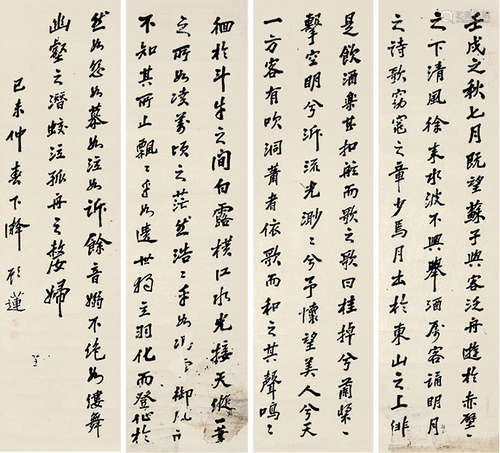 壬戌之秋七月既望蘇子與客泛舟遊於赤壁〻
之下清風徐來水波不興舉酒屬客誦明月
之詩歌窈窕之章少焉月出於東山之上徘
徊於斗牛之間白露橫江水光接天縱一葦
之所如凌萬頃之茫然浩〻乎如御風而
不知其所止飄〻乎如遺世獨立羽化而登仙於
是飲酒樂甚扣舷而歌之歌曰桂棹兮蘭槳〻
擊空明兮泝流光渺〻兮予懷望美人兮天
一方客有吹洞蕭者依歌而和之其聲鳴〻
然如怨如慕如泣如訴餘音嫋不絕如縷舞
幽壑之潛蛟泣孤舟之嫠婦
己未仲春下澣 蓮